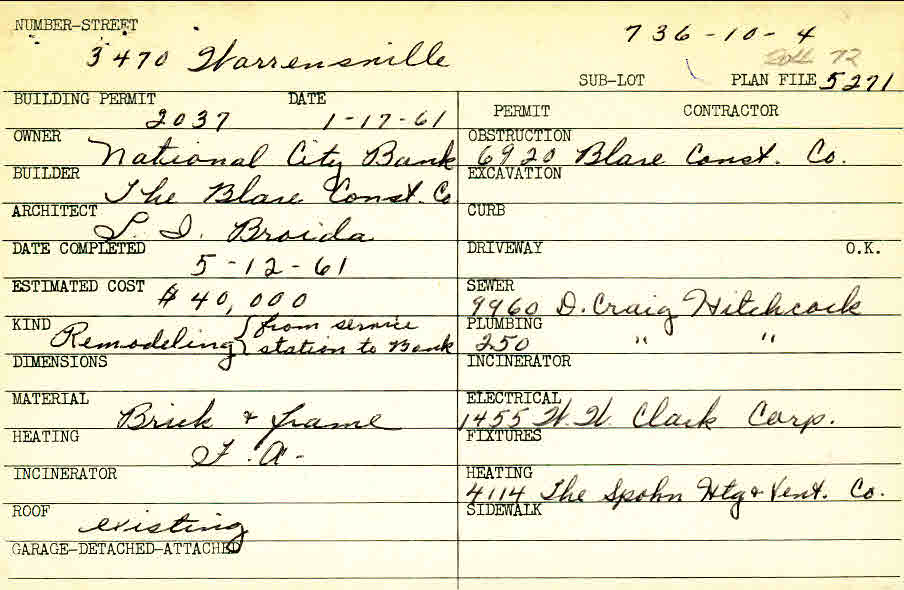 NUMBER-STREET
3470 Warrensville
736-10-4
72
SUB-LOT PLAN FILE 5271
BUILDING PERMIT DATE
2037 1-17-61
PERMIT CONTRACTOR
OWNER
National City Bank
OBSTRUCTION
6920 Blase Const. Co.
BUILDER
The Blase Const. Co
EXCAVATION
ARCHITECT
S. I. Broida
CURB
DATE COMPLETED
5-12-61
DRIVEWAY O.K.
ESTIMATED COST
$ 40,000
SEWER
9960 D. Craig Hitchcock
KIND
Remodeling { from service
station to Bank
PLUMBING
250 " "
DIMENSIONS
INCINERATOR
MATERIAL
Brick & frame
ELECTRICAL
1455 W. W. Clark Corp.
HEATING
F.A.
FIXTURES
INCINERATOR
HEATING
4114 The Spohn Htg & Vent. Co.
ROOF
existing
SIDEWALK
GARAGE-DETACHED-ATTACHED